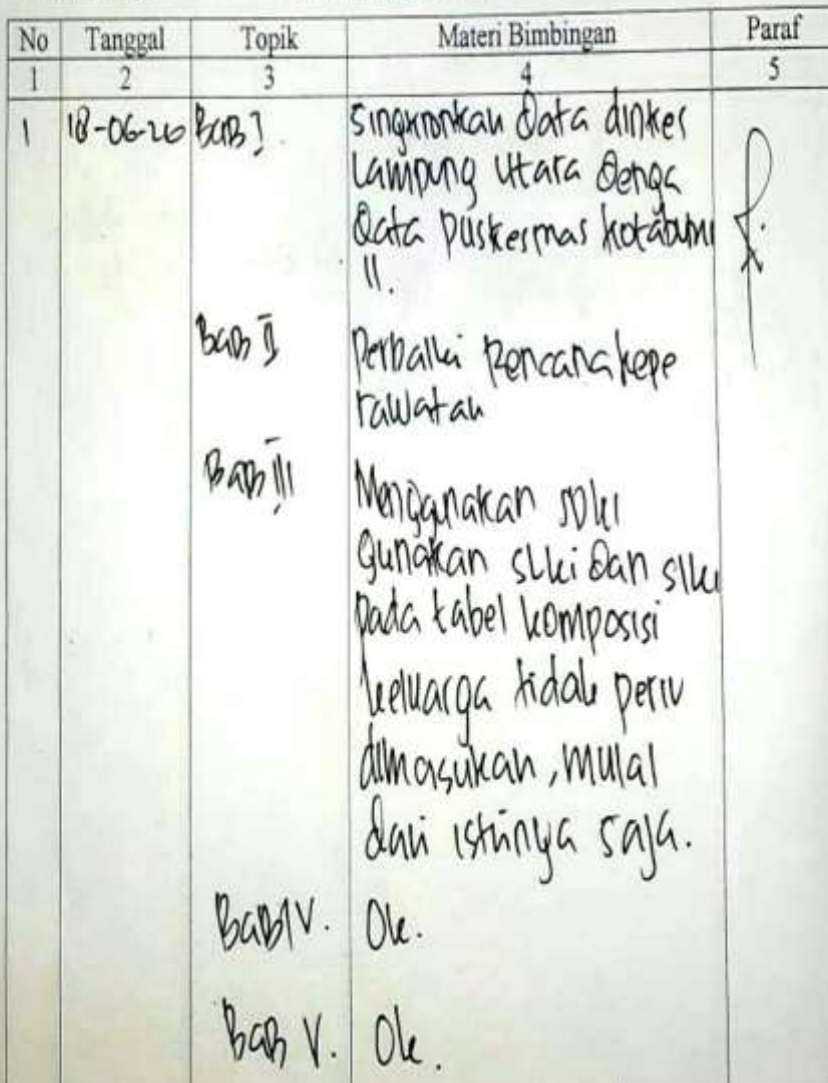 No Tanggal Topik Materi Bimbingan Paraf
1 2 3 4 5
1 18-06-20 BAB I. Singkronkan Data dinkes
Lampung Utara Denga
Data puskesmas kotabumi
II.
BAB II Perbaiki Rencana kepe
rawatan
BAB III Mengunakan SDKI
Gunakan SLKI Dan SIKI
pada tabel komposisi
keeluarga tidak perlu
dimasukan, mulai
dari istrinya saja.
BAB IV. Ok.
BAB V. Ok.